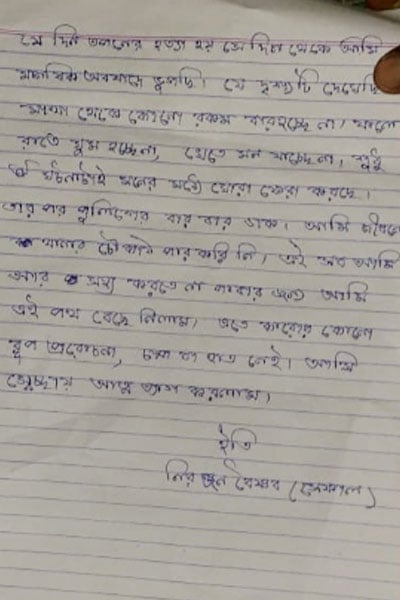 যে দিন তপনের হত্যা হয় সে দিন থেকে আমি
মানসিক অবসাদে ভুগছি। যে দৃশ্যটি দেখেছি
মাথা থেকে কোনো রকম বার হচ্ছে না। ফলে
রাতে ঘুম হচ্ছে না, খেতে মন যাচ্ছে না, শুধু
ঐ ঘটনাটাই মনের মধ্যে ঘোরা ফেরা করছে।
তার পর পুলিশের বার বার ডাক। আমি জীবনে
থানার চৌকাঠ পার করিনি। এই সব আমি
আর সহ্য করতে না পারার জন্য আমি
এই পথ বেছে নিলাম। এতে কারোর কোনো
রূপ প্ররোচনা, চাপ বা হাত নেই। আমি
স্বেচ্ছায় আত্ম ত্যাগ করলাম।
ইতি
নিরঞ্জন বৈষ্ণব (সেফাল)